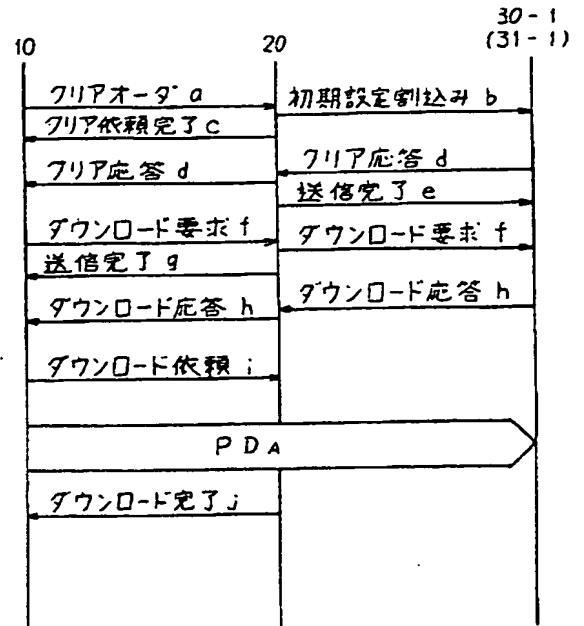 30-1
10 20 (31-1)
クリアオーダ a
初期設定割込み b
クリア依頼完了 c
クリア応答 d
クリア応答 d
送信完了 e
ダウンロード要求 f
ダウンロード要求 f
送信完了 g
ダウンロード応答 h
ダウンロード応答 h
ダウンロード依頼 i
PDA
ダウンロード完了 j